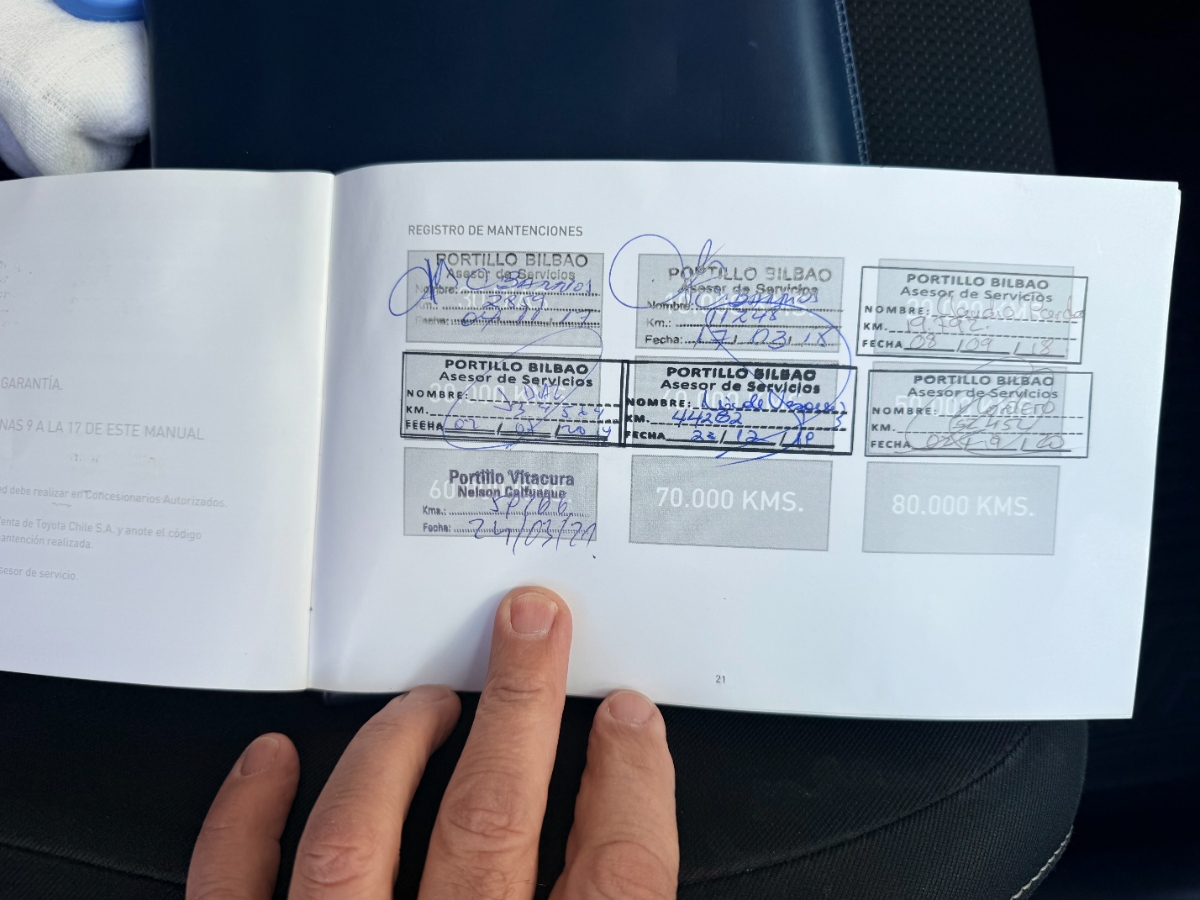 GARANTÍA.
NAS 9 A LA 17 DE ESTE MANUAL
ed debe realizar en Concesionarios Autorizados.
Venta de Toyota Chile S.A. y anote el código
mantención realizada.
sesor de servicio.
REGISTRO DE MANTENCIONES
PORTILLO BILBAO
Asesor de Servicios
Nombre: C BARRIOS
Km.:
Fecha: 07/11/17
PORTILLO BILBAO
Asesor de Servicios
Nombre: C BARRIOS
Km.: 11248
Fecha: 17/03/18
PORTILLO BILBAO
Asesor de Servicios
NOMBRE: Claudio
KM. 19.792.
FECHA 08/09/18
PORTILLO BILBAO
Asesor de Servicios
NOMBRE:
KM.
FECHA 02/07/2019
PORTILLO BILBAO
Asesor de Servicios
NOMBRE:
KM. 44282
FECHA 23/12/
PORTILLO BILBAO
Asesor de Servicios
NOMBRE: Cordero
KM.
FECHA
60
Portillo Vitacura
Nelson Calfueque
Kms.:
Fecha: 24/03/21
70.000 KMS.
80.000 KMS.
21